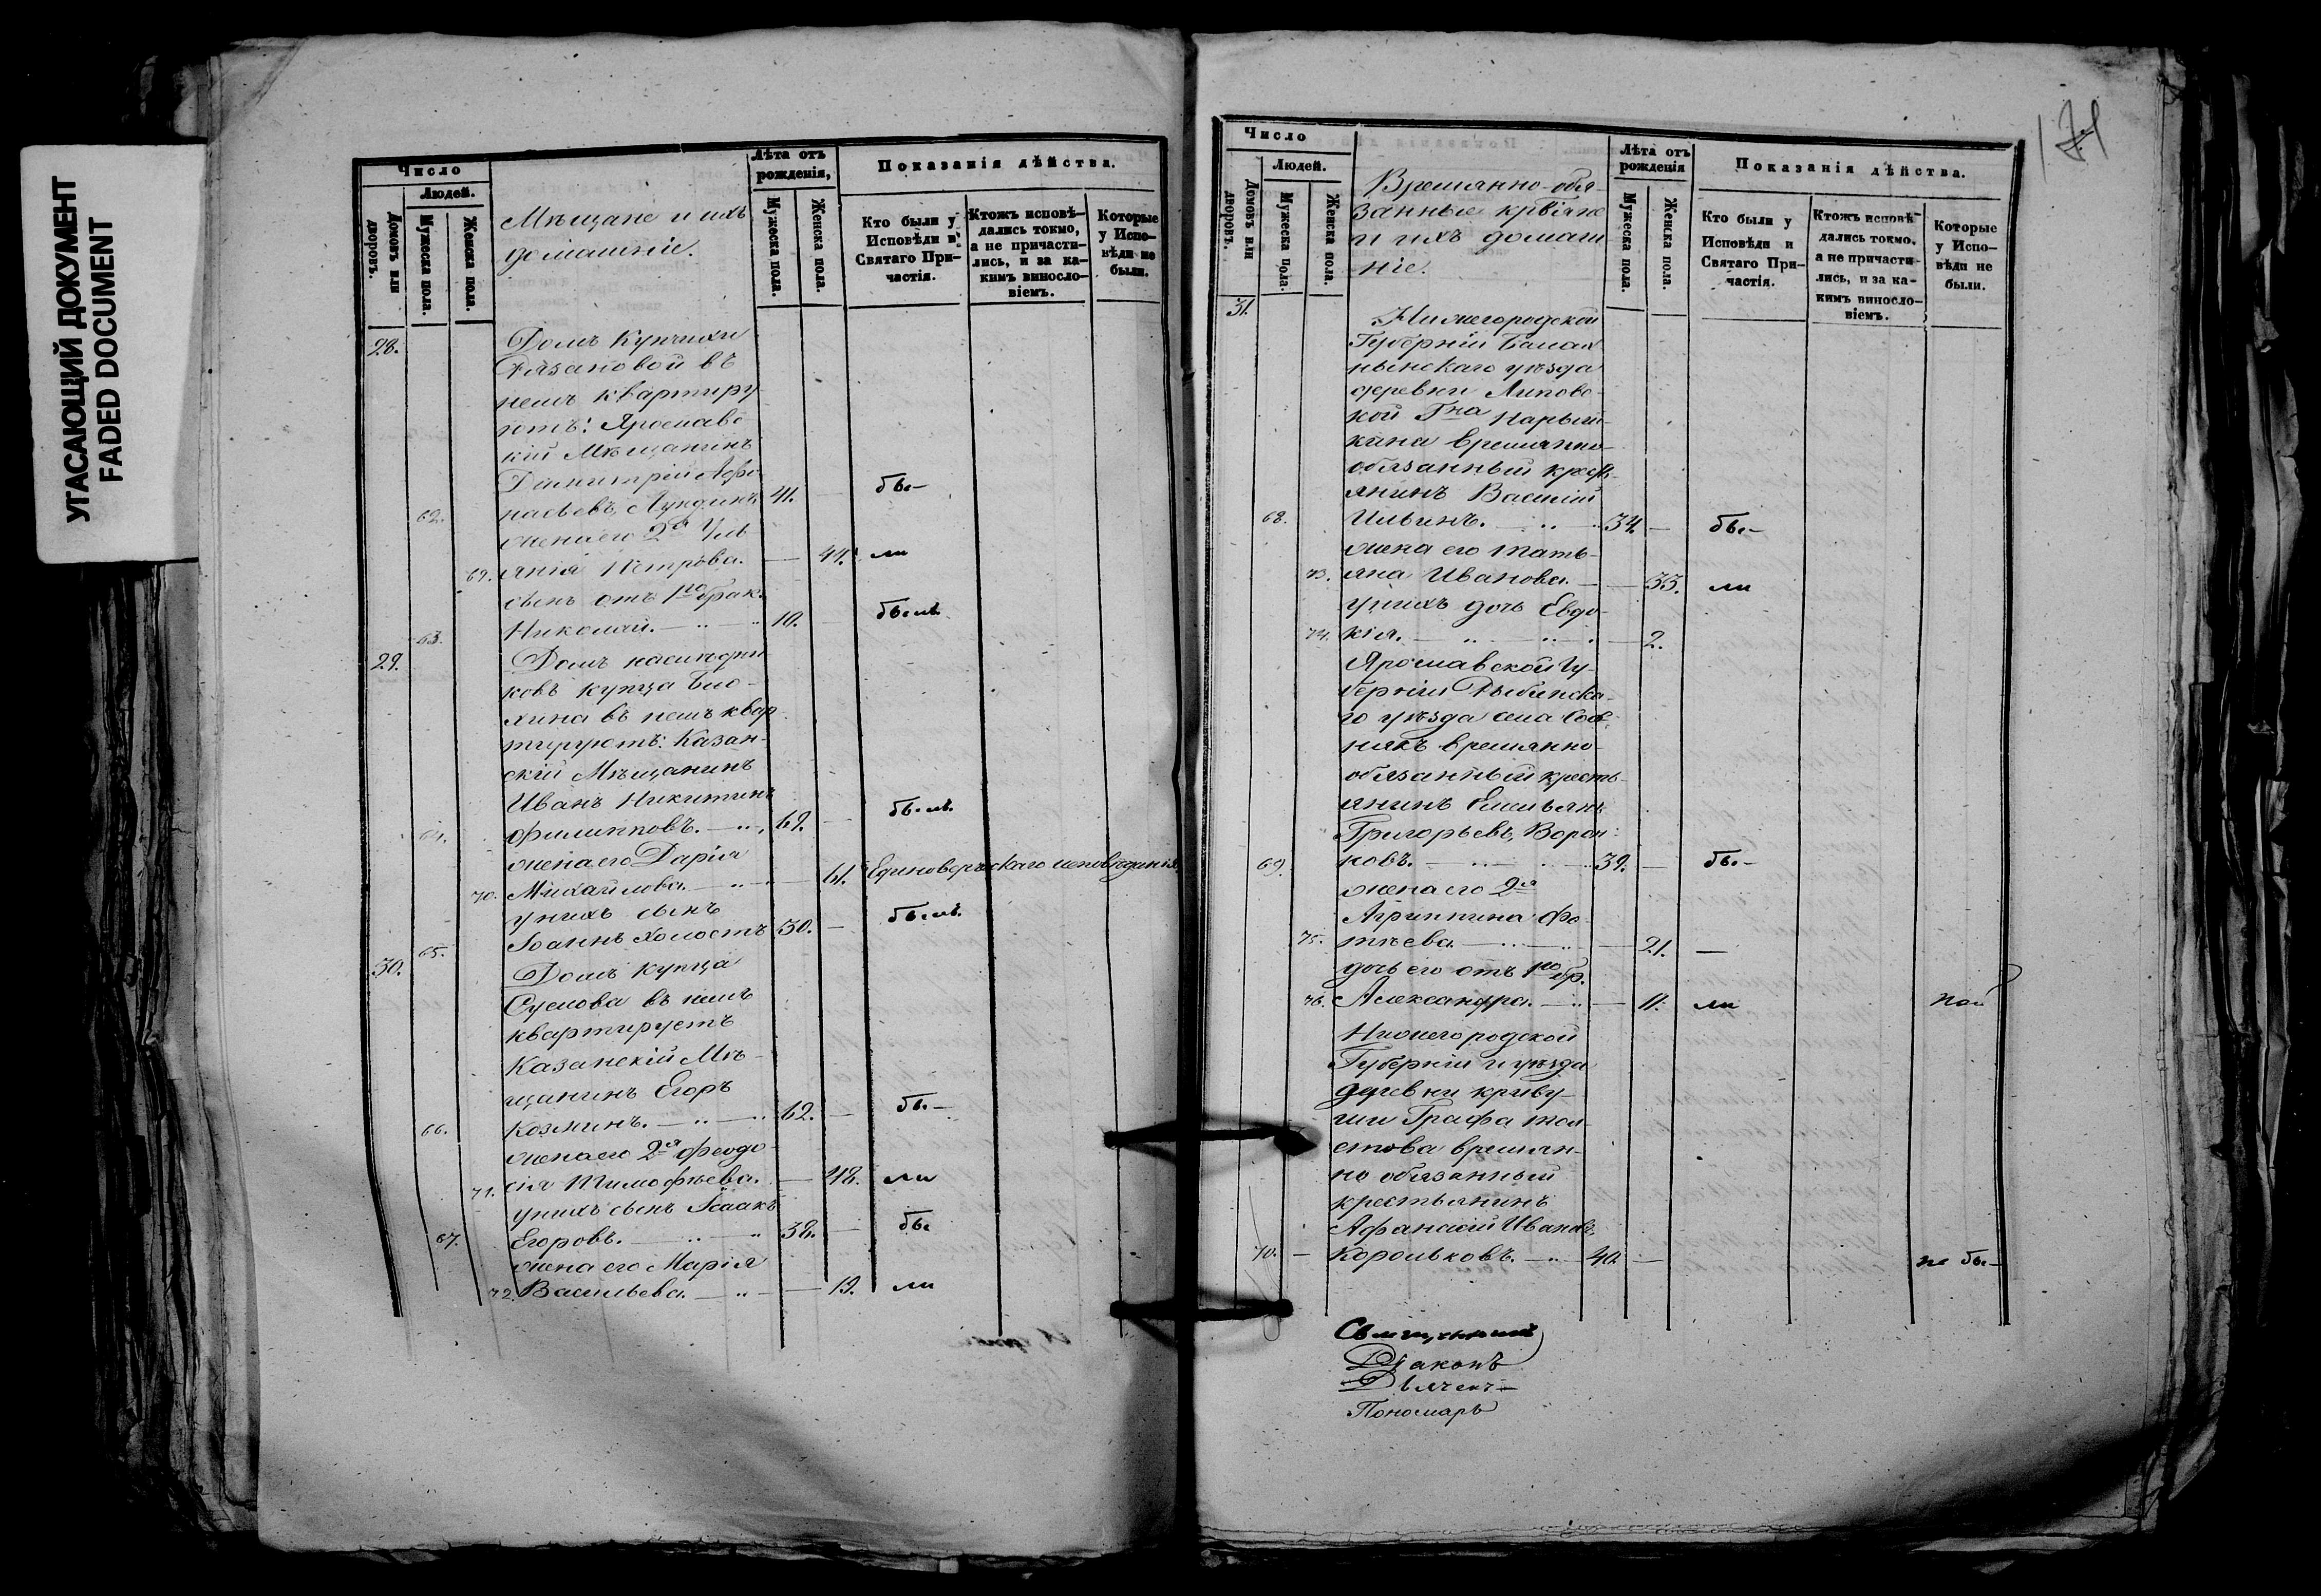 УГАСАЮЩИЙ ДОКУМЕНТ
FADED DOCUMENT
Число
Людей.
Домовъ или дворовъ.
Мужеска пола.
Женска пола.
Мѣщане и ихъ
домашніе.
Лѣта отъ рожденія,
Мужеска пола.
Женска пола.
Показанія дѣйства.
Кто были у Исповѣди и Святаго Причастія.
Ктожъ исповѣдались токмо, а не причастились, и за какимъ винословіемъ.
Которые у Исповѣди не были.
28. Домъ Купчихи
Рязановой въ
немъ квартиру
ютъ: Ярославс
кій Мѣщанинъ
Димитрій Афо-
62. насьевъ Лундинъ 41. — бы-
жена его 2я Уль
69. янія Петрова. — 44. ли
сынъ отъ 1го брак.
63. Николай. — 10. былъ
29. Домъ наслѣдни
ковъ купца Бло-
хина въ немъ квар
тируютъ: Казан-
скій Мѣщанинъ
Иванъ Никитинъ
64. Филипповъ. — 69. — былъ
жена его Дарія
70. Михайлова. — 61. Единовѣрческаго исповѣданія
у нихъ сынъ
65. Іоаннъ холостъ 30. — былъ
30. Домъ купца
Суслова въ немъ
квартируетъ
Казанскій Мѣ-
щанинъ Егоръ
66. Козминъ. — 62. — бы-
жена его 2я Феодо
71. сія Тимофѣева. — 48. ли
у нихъ сынъ Ісаакъ
67. Егоровъ. — 38. — бы
жена его Марія
72. Васильева. — 19. ли
171
Число
Людей.
Домовъ или дворовъ.
Мужеска пола.
Женска пола.
Времянно-обя-
занные крѣяне
и ихъ домаш
ніе.
Лѣта отъ рожденія
Мужеска пола.
Женска пола.
Показанія дѣйства.
Кто были у Исповѣди и Святаго Причастія.
Ктожъ исповѣдались токмо, а не причастились, и за какимъ винословіемъ.
Которые у Исповѣди не были.
31. Нижегородской
Губерніи Балах
нынскаго уѣзда
деревни Липовс
кой Гна Нарыш-
кина времянно-
обязанный кресть-
янинъ Василій
68. Ильинъ. — 34. — бы-
жена его Тать-
73. яна Иванова. — 33. ли
у нихъ дочь Евдо-
74. кія. — 2.
Ярославской Гу-
берніи Рыбинска-
го уѣзда села
временно
обязанный кресть-
янинъ Емельянъ
Григорьевъ Ворон-
69. ковъ. — 39. — бы-
жена его 2я
Агриппина Фо-
75. тѣева. — 21. —
дочь его отъ 1го бр.
76. Александра. — 11. ли
Нижегородской
Губерніи и уѣзда
деревни Криву-
ши Графа Тол
стова времян-
но обязанный
крестьянинъ
Афанасій Ивановъ
70. — Корольковъ. — 40. — не бы-
Священникъ
Діаконъ
Дьячекъ
Пономарь